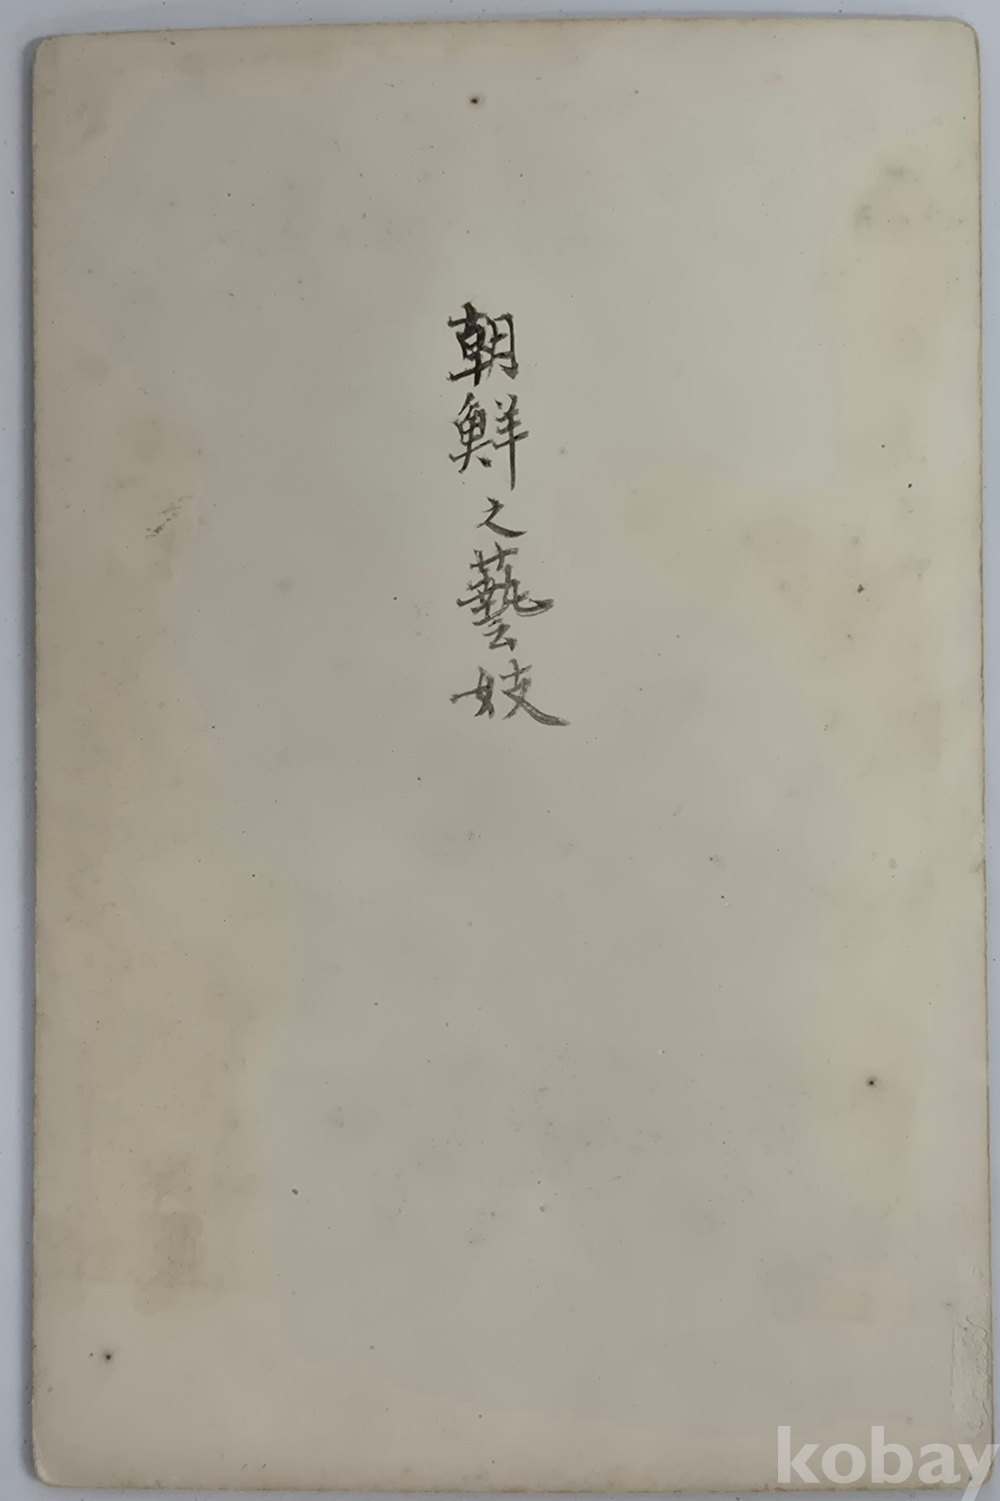 朝鮮之藝妓
kobay